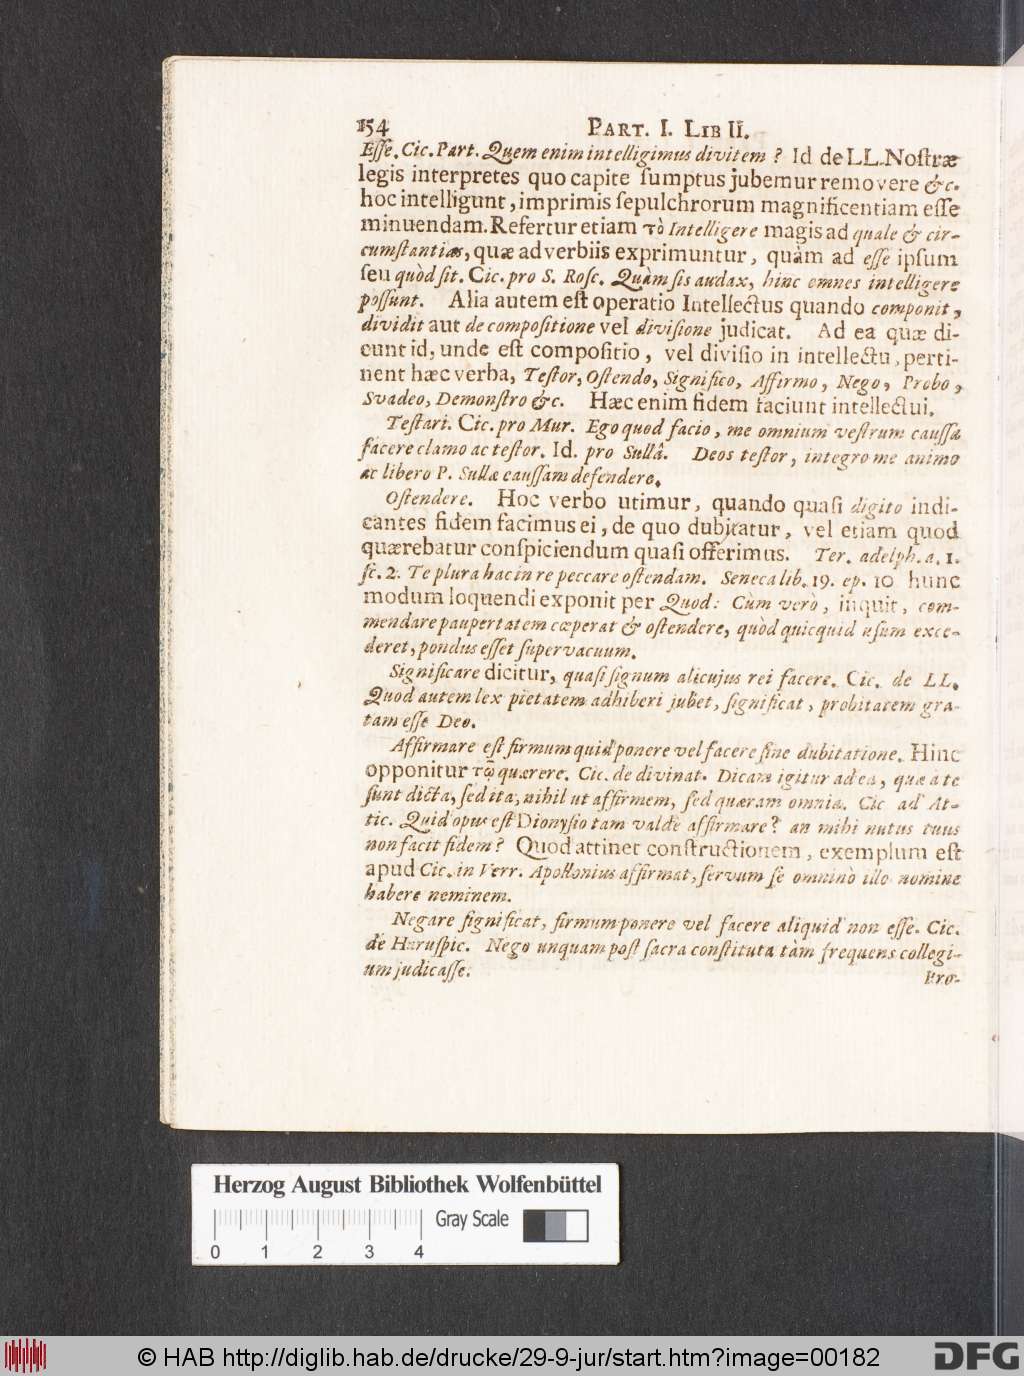 154 PART. I. LIB II.
Eſſe. Cic. Part. Quem enim intelligimus divitem? Id de LL. Noſtræ
legis interpretes quo capite ſumptus jubemur removere &c.
hoc intelligunt, imprimis ſepulchrorum magnificentiam eſſe
minuendam. Refertur etiam τὸ Intelligere magis ad quale & cir-
cumſtantias, quæ adverbiis exprimuntur, quàm ad eſſe ipſum
ſeu quòd ſit. Cic. pro S. Roſc. Quàm ſis audax, hinc omnes intelligere
poſſunt. Alia autem eſt operatio Intellectus quando componit,
dividit aut de compoſitione vel diviſione judicat. Ad ea quæ di-
cunt id, unde eſt compoſitio, vel diviſio in intellectu, perti-
nent hæc verba, Teſtor, Oſtendo, Significo, Affirmo, Nego, Probo,
Svadeo, Demonſtro &c. Hæc enim fidem faciunt intellectui.
Teſtari. Cic. pro Mur. Ego quod facio, me omnium veſtrum cauſſa
facere clamo ac teſtor. Id. pro Sullâ. Deos teſtor, integro me animo
ac libero P. Sullæ cauſſam defendere.
Oſtendere. Hoc verbo utimur, quando quaſi digito indi-
cantes fidem facimus ei, de quo dubitatur, vel etiam quod
quærebatur conſpiciendum quaſi offerimus. Ter. adelph. a. 1.
ſc. 2. Te plura hac in re peccare oſtendam. Seneca lib. 19. ep. 10 hunc
modum loquendi exponit per Quod: Cùm verò, inquit, com-
mendare paupertatem cœperat & oſtendere, quòd quicquid uſum exce-
deret, pondus eſſet ſupervacuum.
Significare dicitur, quaſi ſignum alicujus rei facere. Cic. de LL.
Quod autem lex pietatem adhiberi jubet, ſignificat, probitatem gra-
tam eſſe Deo.
Affirmare eſt firmum quid ponere vel facere ſine dubitatione. Hinc
opponitur τῷ quærere. Cic. de divinat. Dicam igitur ad ea, quæ à te
ſunt dicta, ſed ita, nihil ut affirmem, ſed quæram omnia. Cic ad At-
tic. Quid opus eſt Dionyſio tam valdè affirmare? an mihi nutus tuus
non facit fidem? Quod attinet conſtructionem, exemplum eſt
apud Cic. in Verr. Apollonius affirmat, ſervum ſe omninò illo nomine
habere neminem.
Negare ſignificat, firmum ponere vel facere aliquid non eſſe. Cic.
de Haruſpic. Nego unquam poſt ſacra conſtituta tàm frequens collegi-
um judicaſſe.
Pro-
Herzog August Bibliothek Wolfenbüttel
Gray Scale
0 1 2 3 4
© HAB http://diglib.hab.de/drucke/29-9-jur/start.htm?image=00182
DFG